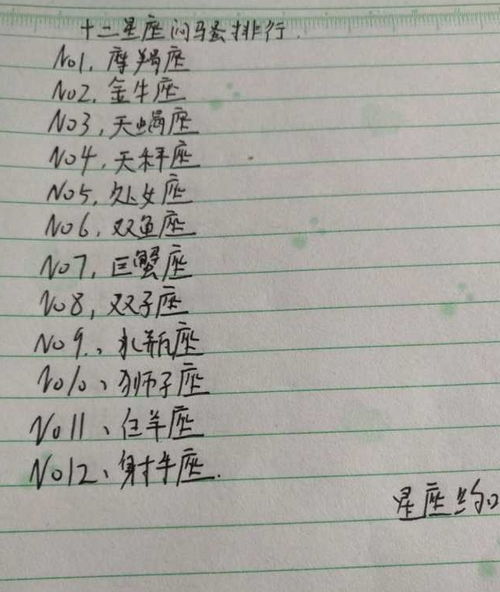 十二星座闷骚排行.
No1, 摩羯座
No2, 金牛座
No3, 天蝎座
No4, 天秤座
No5, 处女座
No6, 双鱼座
No7, 巨蟹座
No8, 双子座
No9、水瓶座
No10、狮子座
No11、白羊座
No12、射手座.
星座